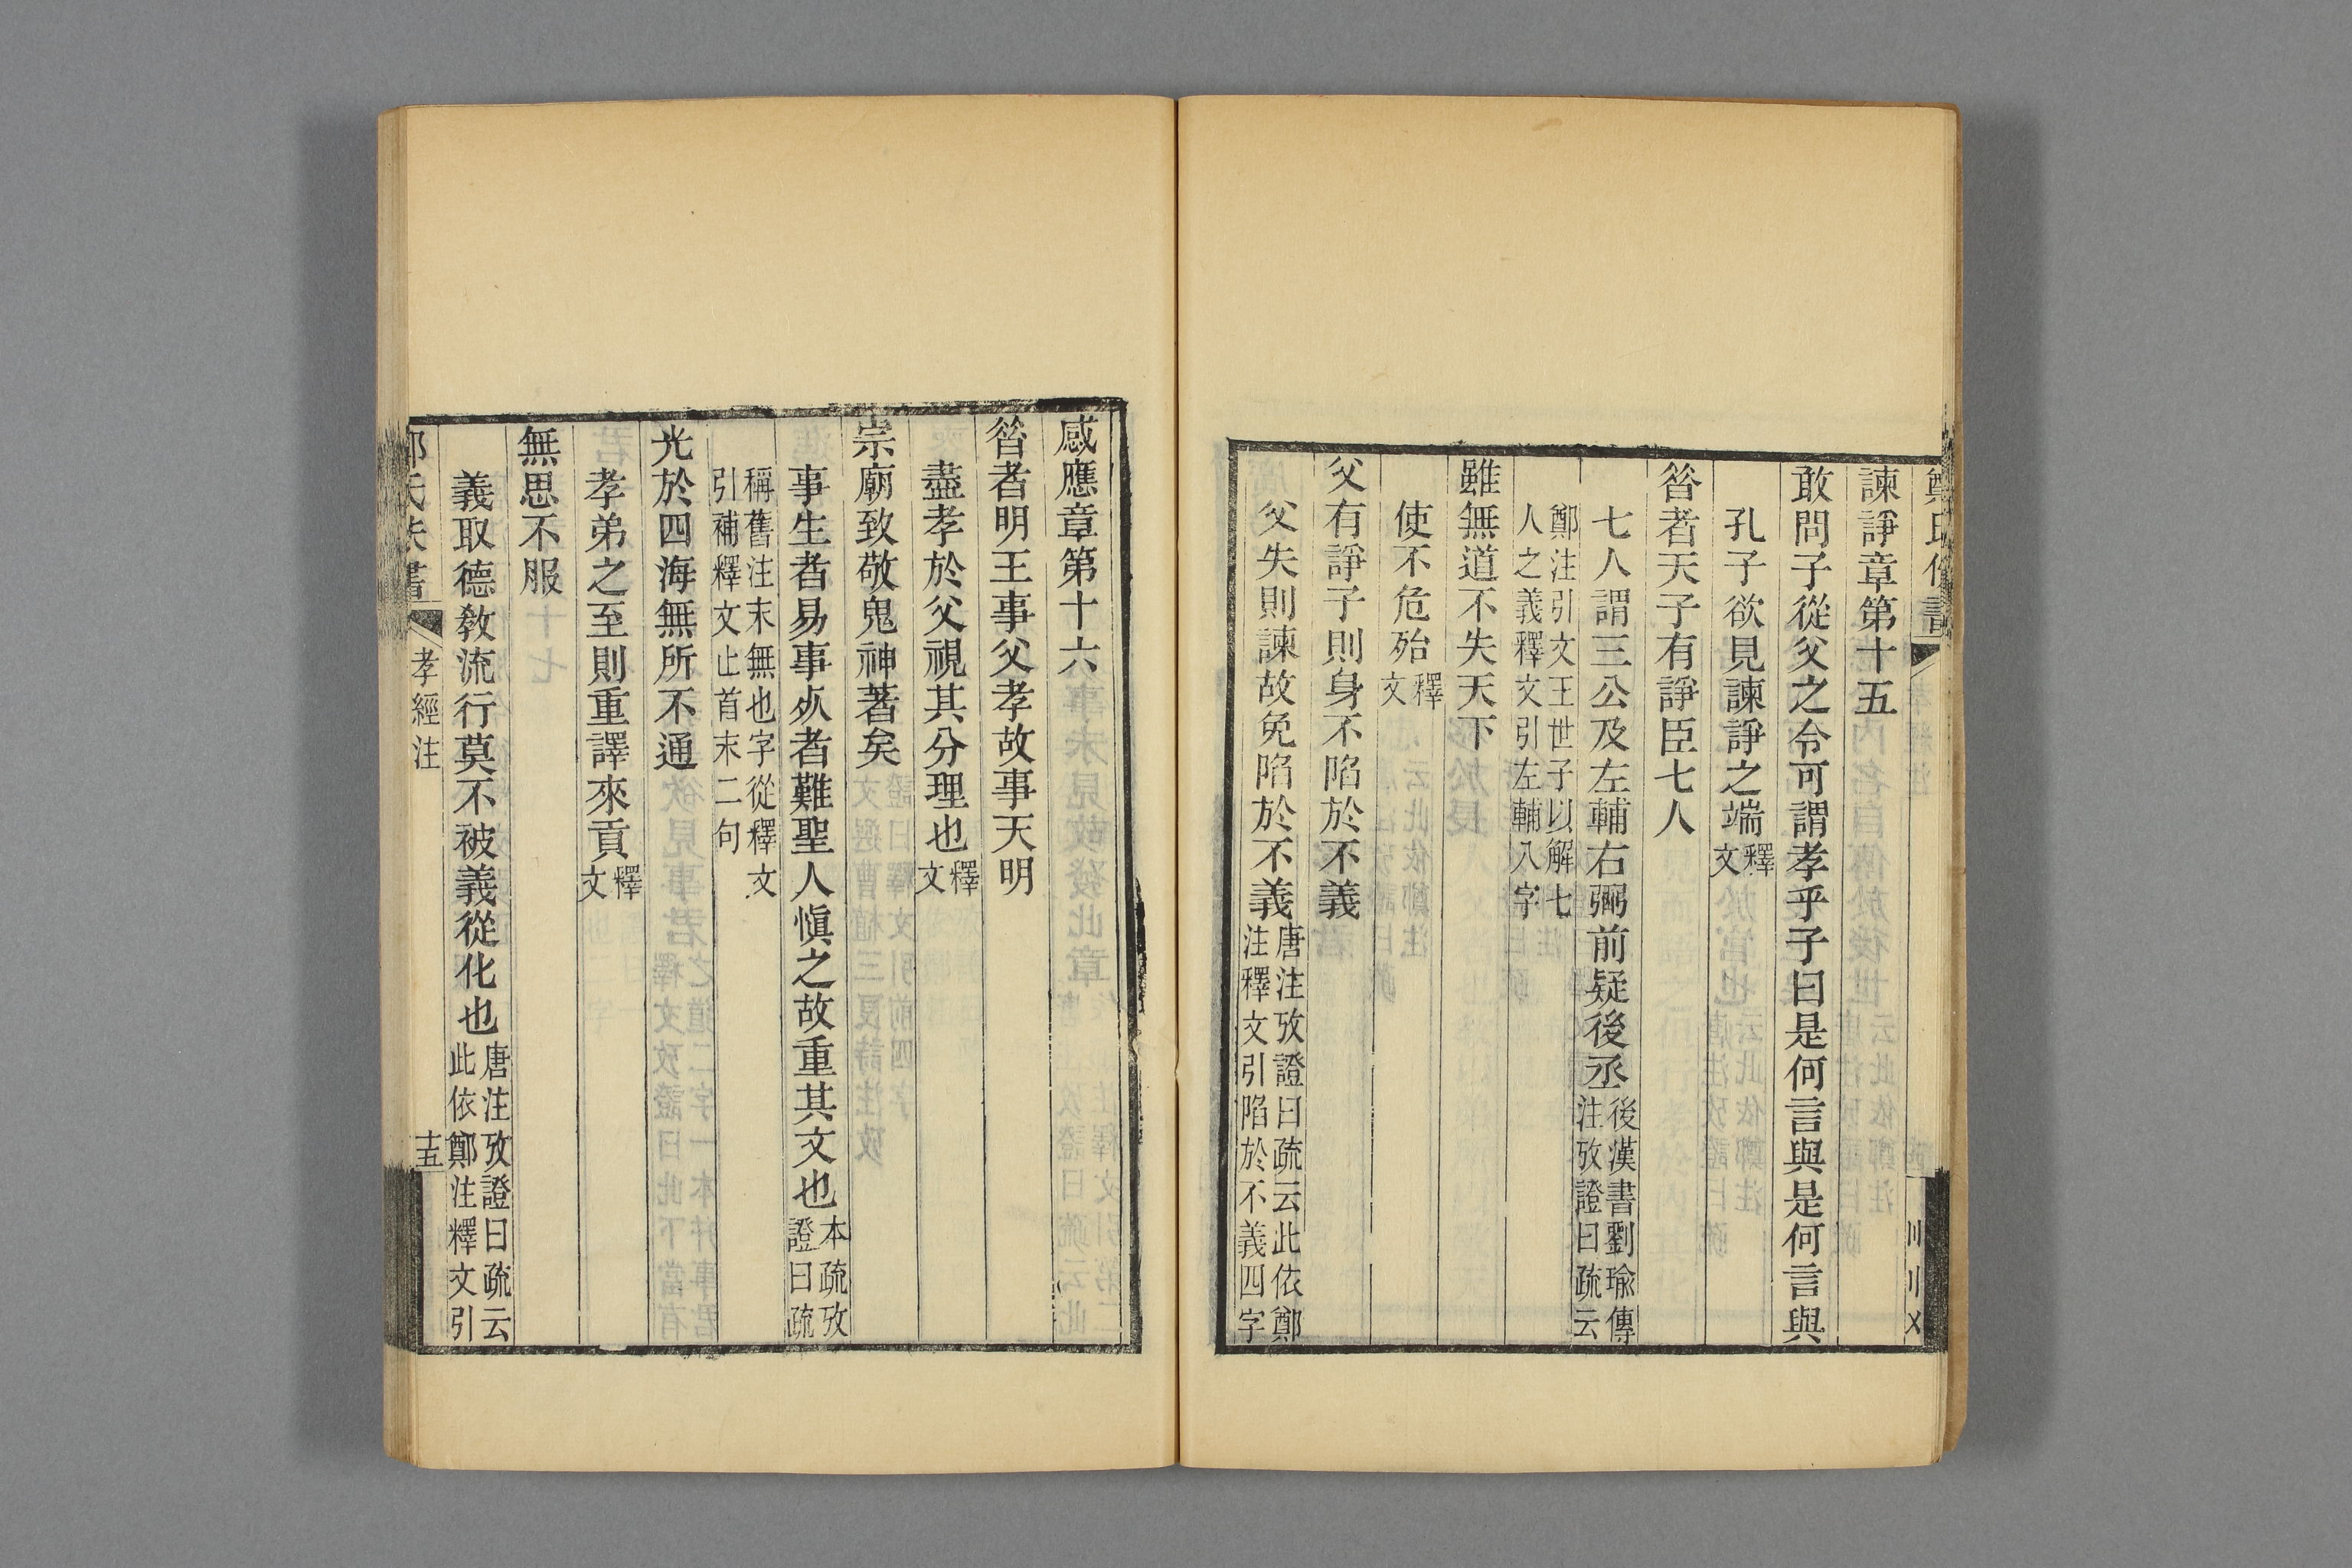 諫諍章第十五
敢問子從父之令可謂孝乎子曰是何言與是何言與
孔子欲見諫諍之端釋文
昝者天子有諍臣七人
七人謂三公及左輔右弼前疑後丞後漢書劉瑜傳注攷證曰疏云
鄭注引文王世子以解七人之義釋文引左輔八字
雖無道不失天下
使不危殆釋文
父有諍子則身不陷於不義
父失則諫故免陷於不義唐注攷證曰疏云此依鄭注釋文引陷於不義四字
感應章第十六
昝者明王事父孝故事天明
盡孝於父視其分理也釋文
宗廟致敬鬼神著矣
事生者易事𣦸者難聖人愼之故重其文也本疏攷證曰疏
稱舊注末無也字從釋文引補釋文止首末二句
光於四海無所不通
孝弟之至則重譯來貢釋文
無思不服
義取德敎流行莫不被義從化也唐注攷證曰疏云此依鄭注釋文引
孝經注
十五